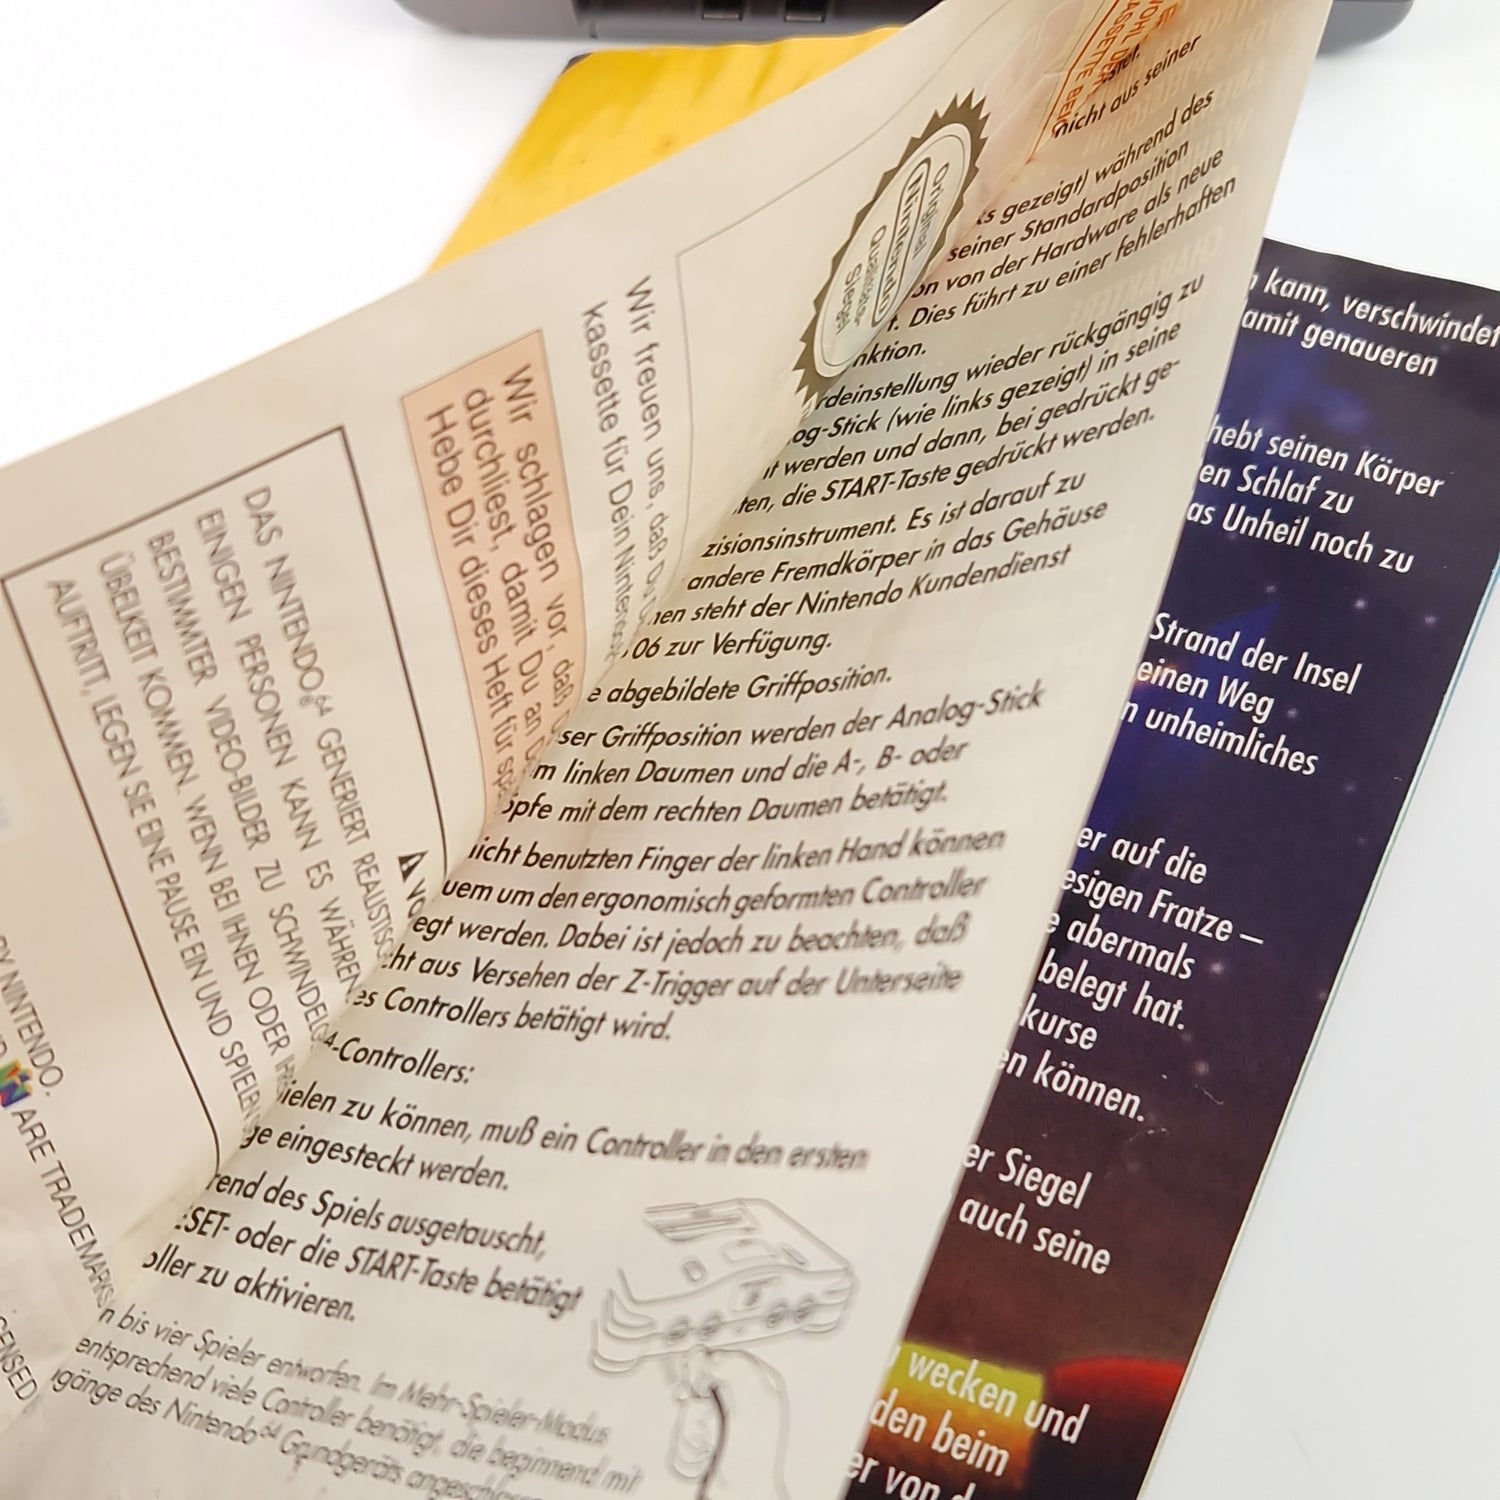 WOHL DER
KASSETTE BEIG
nicht aus seiner
gezeigt) während des
seiner Standardposition
von der Hardware als neue
Dies führt zu einer fehlerhaften
nktion.
rdeinstellung wieder rückgängig zu
og-Stick (wie links gezeigt) in seine
werden und dann, bei gedrückt ge-
ten, die START-Taste gedrückt werden.
zisionsinstrument. Es ist darauf zu
andere Fremdkörper in das Gehäuse
nen steht der Nintendo Kundendienst
06 zur Verfügung.
e abgebildete Griffposition.
ser Griffposition werden der Analog-Stick
m linken Daumen und die A-, B- oder
öpfe mit dem rechten Daumen betätigt.
nicht benutzten Finger der linken Hand können
uem um den ergonomisch geformten Controller
egt werden. Dabei ist jedoch zu beachten, daß
cht aus Versehen der Z-Trigger auf der Unterseite
es Controllers betätigt wird.
64-Controllers:
ielen zu können, muß ein Controller in den ersten
ge eingesteckt werden.
rend des Spiels ausgetauscht,
ESET- oder die START-Taste betätigt
oller zu aktivieren.
n bis vier Spieler entworfen. Im Mehr-Spieler-Modus
entsprechend viele Controller benötigt, die beginnend mit
gänge des Nintendo64 Grundgeräts angeschlossen
Original
Nintendo
Qualitäts-
Siegel
Wir freuen uns, daß Du D
kassette für Dein Nintendo
Wir schlagen vor, daß D
durchliest, damit Du an D
Hebe Dir dieses Heft für spä
DAS NINTENDO64 GENERIERT REALISTISC
EINIGEN PERSONEN KANN ES WÄHREN
BESTIMMTER VIDEO-BILDER ZU SCHWINDELG
ÜBELKEIT KOMMEN. WENN BEI IHNEN ODER IH
AUFTRITT, LEGEN SIE EINE PAUSE EIN UND SPIELEN
BY NINTENDO.
ARE TRADEMARKS
CENSED
kann, verschwindet
amit genaueren
hebt seinen Körper
en Schlaf zu
as Unheil noch zu
Strand der Insel
einen Weg
n unheimliches
er auf die
esigen Fratze –
e abermals
belegt hat.
kurse
en können.
er Siegel
auch seine
wecken und
den beim
er von d